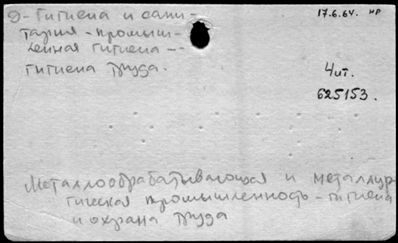 Д - Гигиена и сани-
тария - промыш-
ленная гигиена -
гигиена труда.
17.6.64. НР
Чит.
625153.
Металлообрабатывающая и металлур-
гическая промышленность - гигиена
и охрана труда